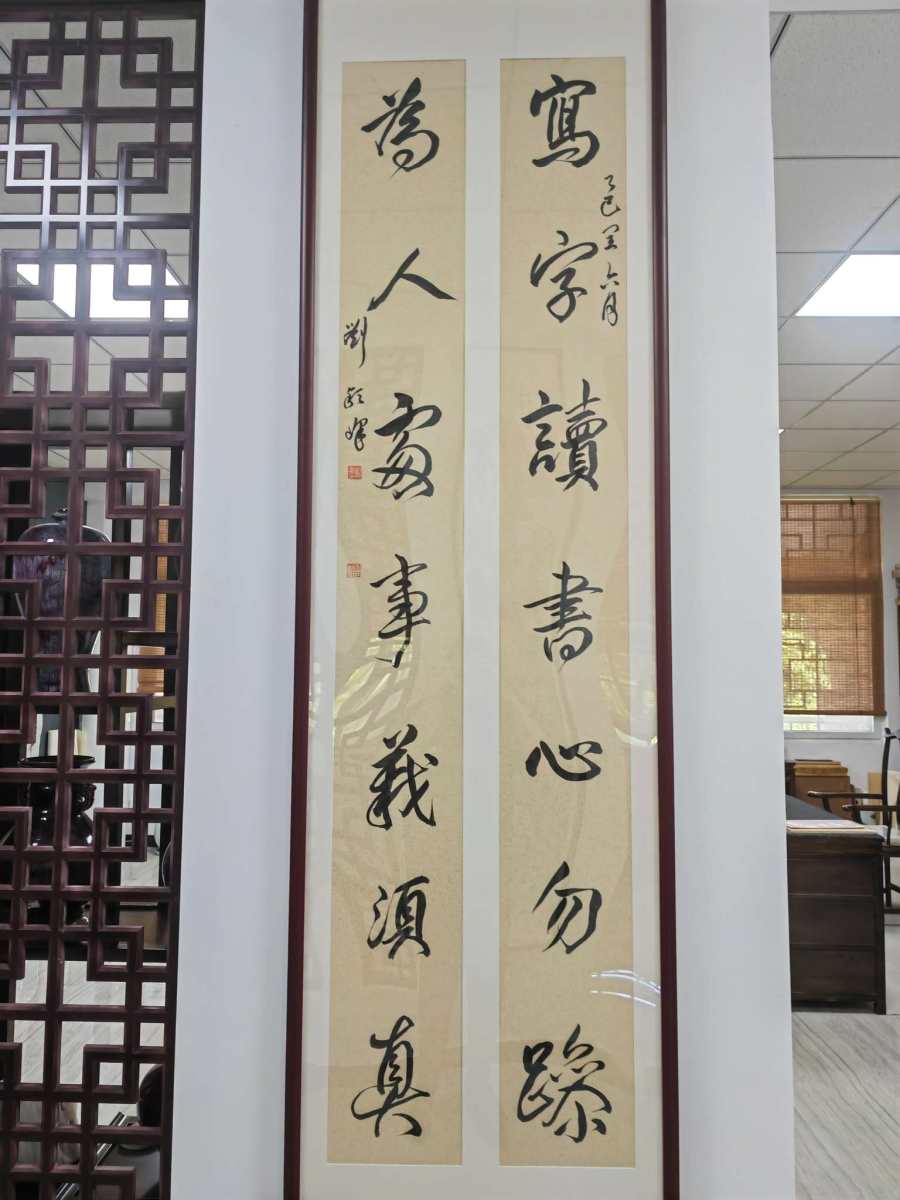 寫字讀書心勿躁
乙巳 六月
為人處事義須真
劉